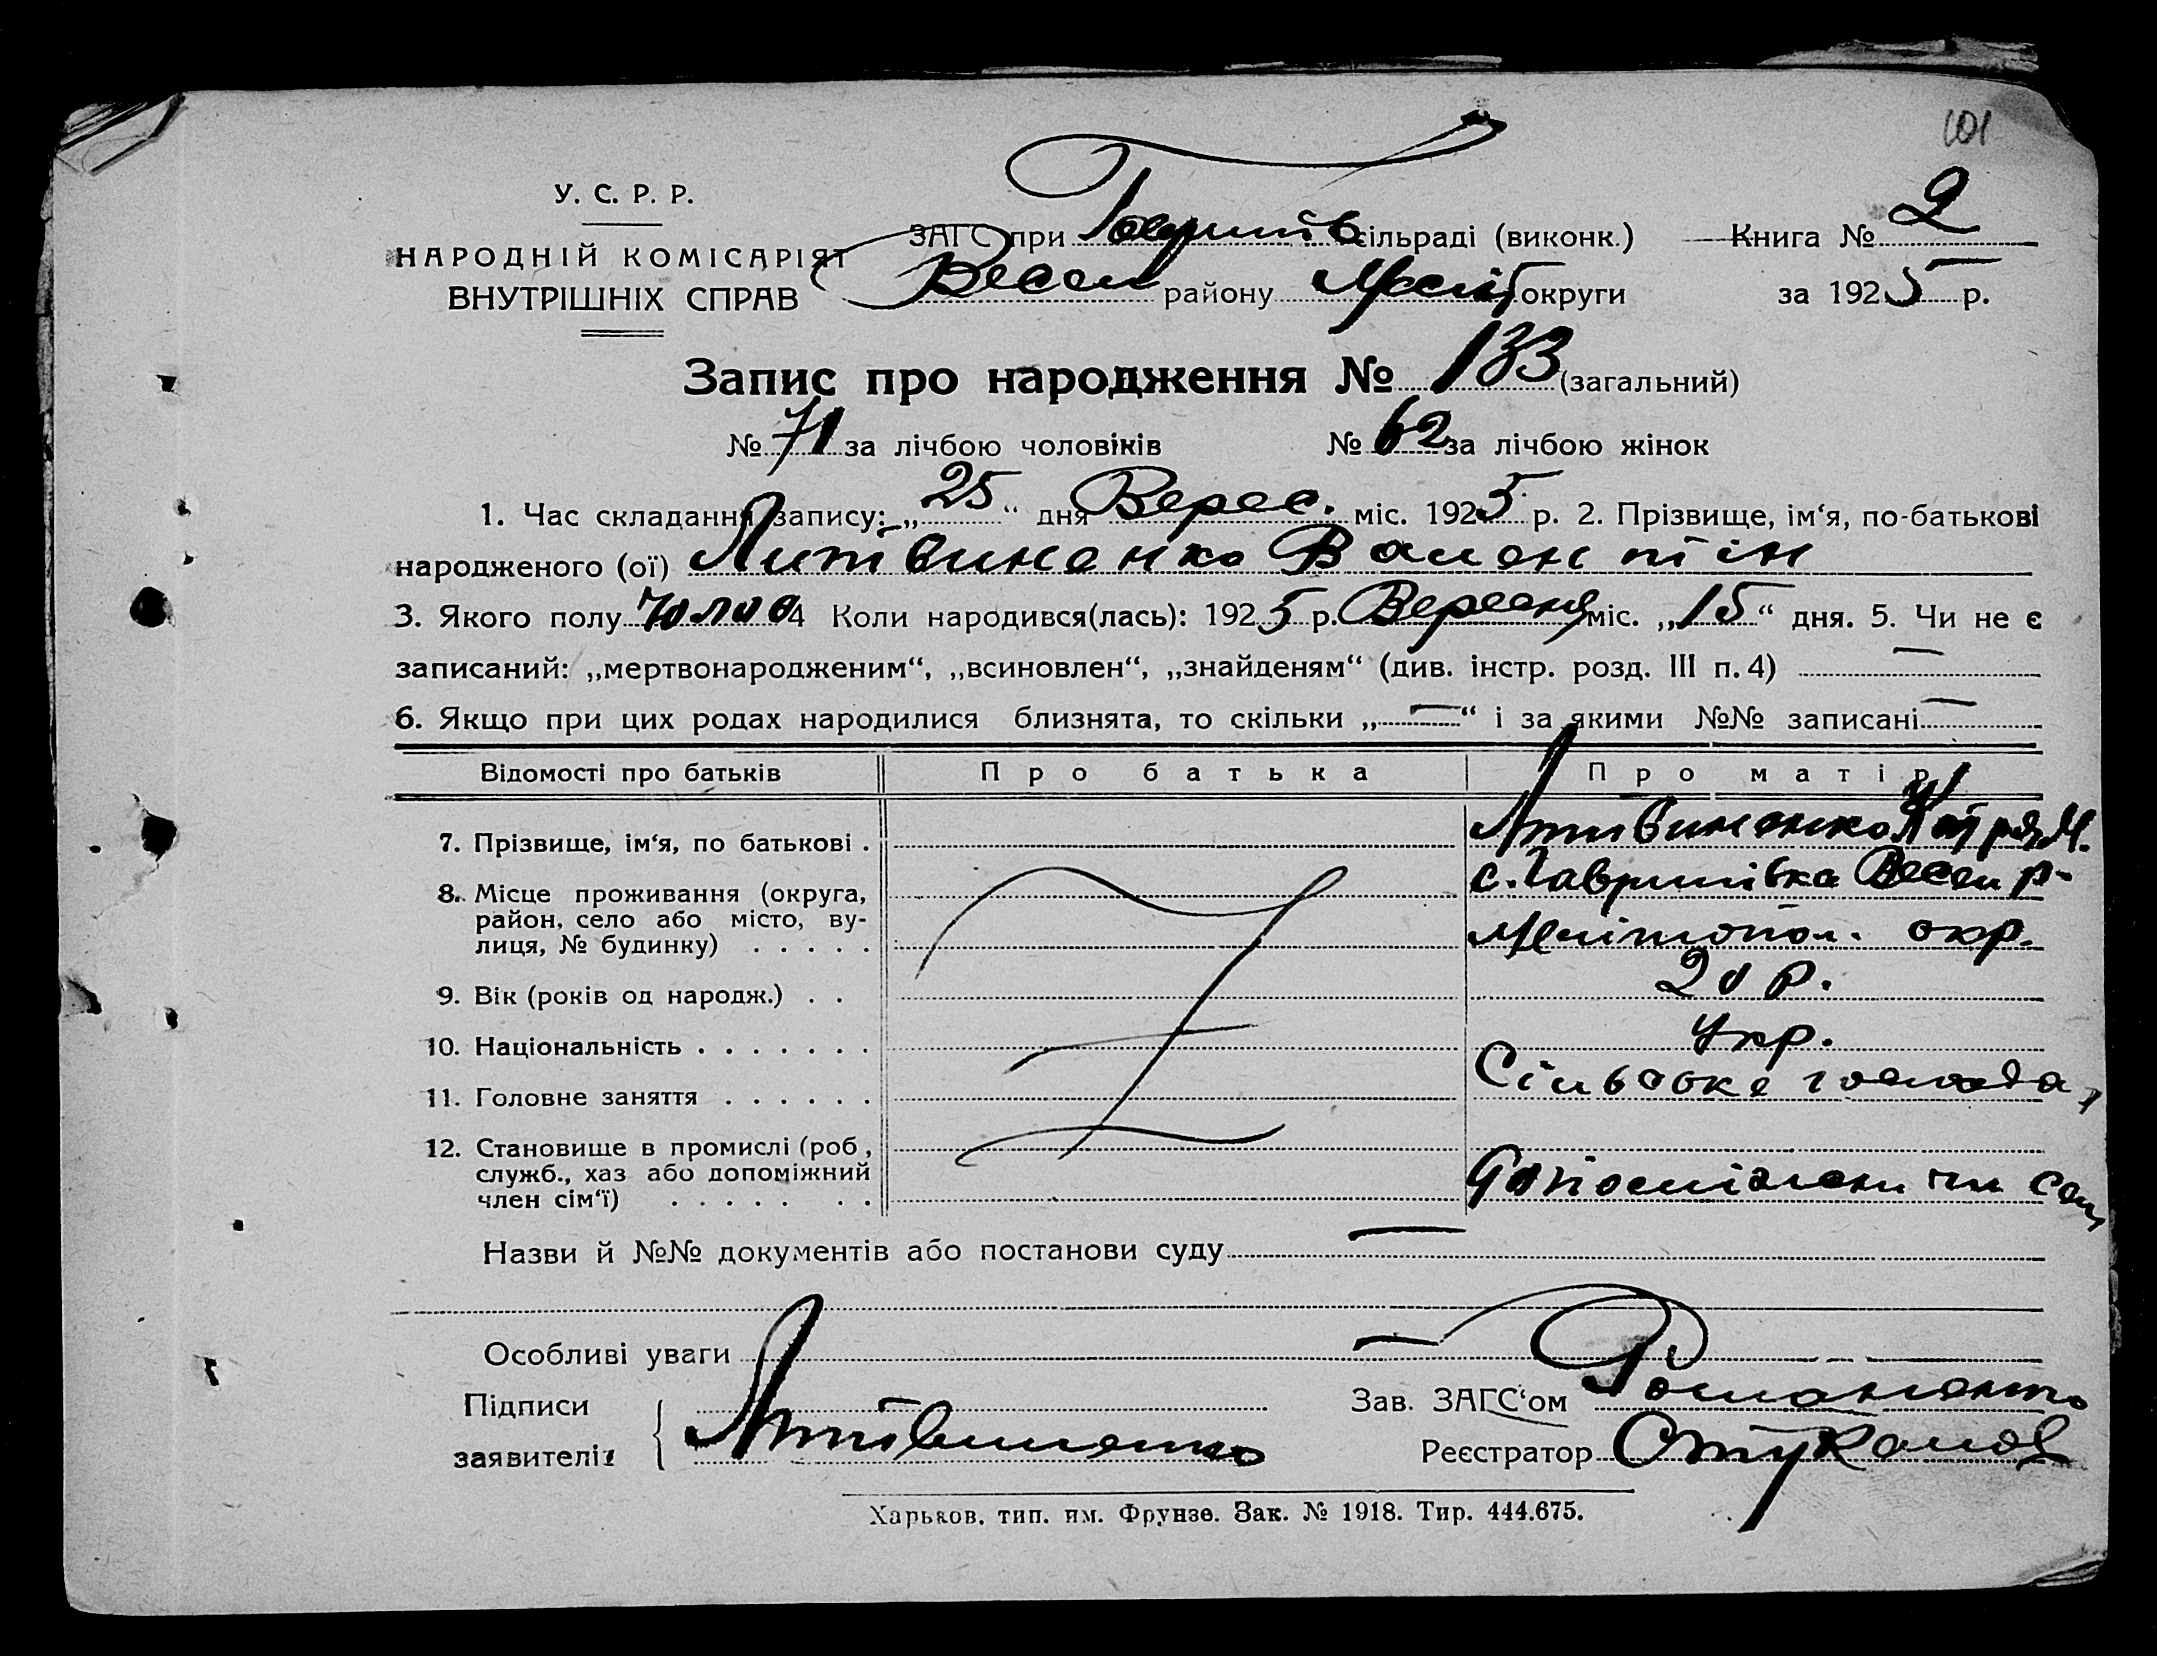 101
У. С. Р. Р.
НАРОДНІЙ КОМІСАРІЯТ
ВНУТРІШНІХ СПРАВ
ЗАГС при Гаврилів сільраді (виконк.)
Весел району Меліт округи
Книга № 2
за 1925 р.
Запис про народження № 133 (загальний)
№ 71 за лічбою чоловіків № 62 за лічбою жінок
1. Час складання запису: „25“ дня Верес. міс. 1925 р. 2. Прізвище, ім‘я, по-батькові
народженого (ої) Литвиненко Валентін
3. Якого полу Чолов 4 Коли народився(лась): 1925 р. Вересня міс. „15“ дня. 5. Чи не є
записаний: „мертвонародженим“, „всиновлен“, „знайденям“ (див. інстр. розд. III п. 4) —
6. Якщо при цих родах народилися близнята, то скільки „—“ і за якими №№ записані —
Відомості про батьків Про батька Про матір
7. Прізвище, ім‘я, по батькові . Литвиненко М.
8. Місце проживання (округа, с. Гаврилівка Весел р-
район, село або місто, ву-
лиця, № будинку) . . . . . Мелітопол. окр.
9. Вік (років од народж.) . . 20 р.
10. Національність . . . . . . . Укр.
11. Головне заняття . . . . . . Сільське господа
12. Становище в промислі (роб,
служб., хаз або допоміжний
член сім‘ї) . . . . . . .
Назви й №№ документів або постанови суду —
Особливі уваги —
Підписи
заявителів Литвиненко
Зав. ЗАГС‘ом Романенко
Реєстратор Стукалов
Харьков, тип. им. Фрунзе. Зак. № 1918. Тир. 444.675.